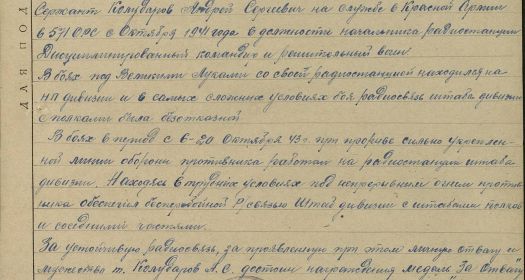 ДЛЯ ПОД
Сержант Колударов Андрей Сергеевич на службе в Красной Армии
в 571 ОРС с Октября 1941 года в должности начальника радиостанции
Дисциплинированный командир и решительный воин
В боях под Великими Луками со своей радиостанцией находился на
НП дивизии и в самых сложных условиях боя радиосвязь штаба дивизии
с полками была безотказной
В боях в период с 6-20 Октября 43 г. при прорыве сильно укреплен-
ной линии обороны противника работал на радиостанции штаба
дивизии. Находясь в трудных условиях под непрерывным огнем против-
ника обеспечил бесперебойной Р/связью Штаб дивизии с штабами полков
и соседними частями.
За устойчивую радиосвязь, за проявленную при этом личную отвагу и
мужество т. Колударов А.С. достоин награждения медали "За Отвагу"